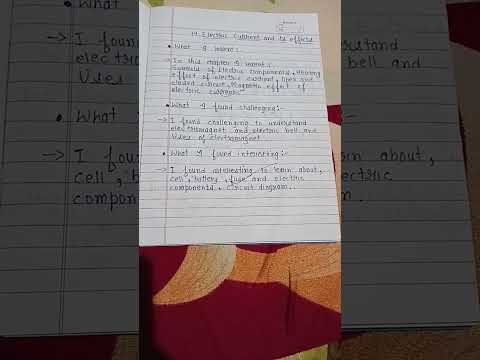 14. Electric Current and its effects
• What I learnt :-
→ In this chapter I learnt :
Symbols of electric components, Heating
effect of electric current, Open and
closed circuit, Magnetic effect of
electric current.
• What I found challenging :-
→ I found challenging to understand
electromagnet and electric bell and
Uses of electromagnet
• What I found interesting :-
→ I found interesting to learn about,
cell, battery, fuse and electric
components, circuit diagram.